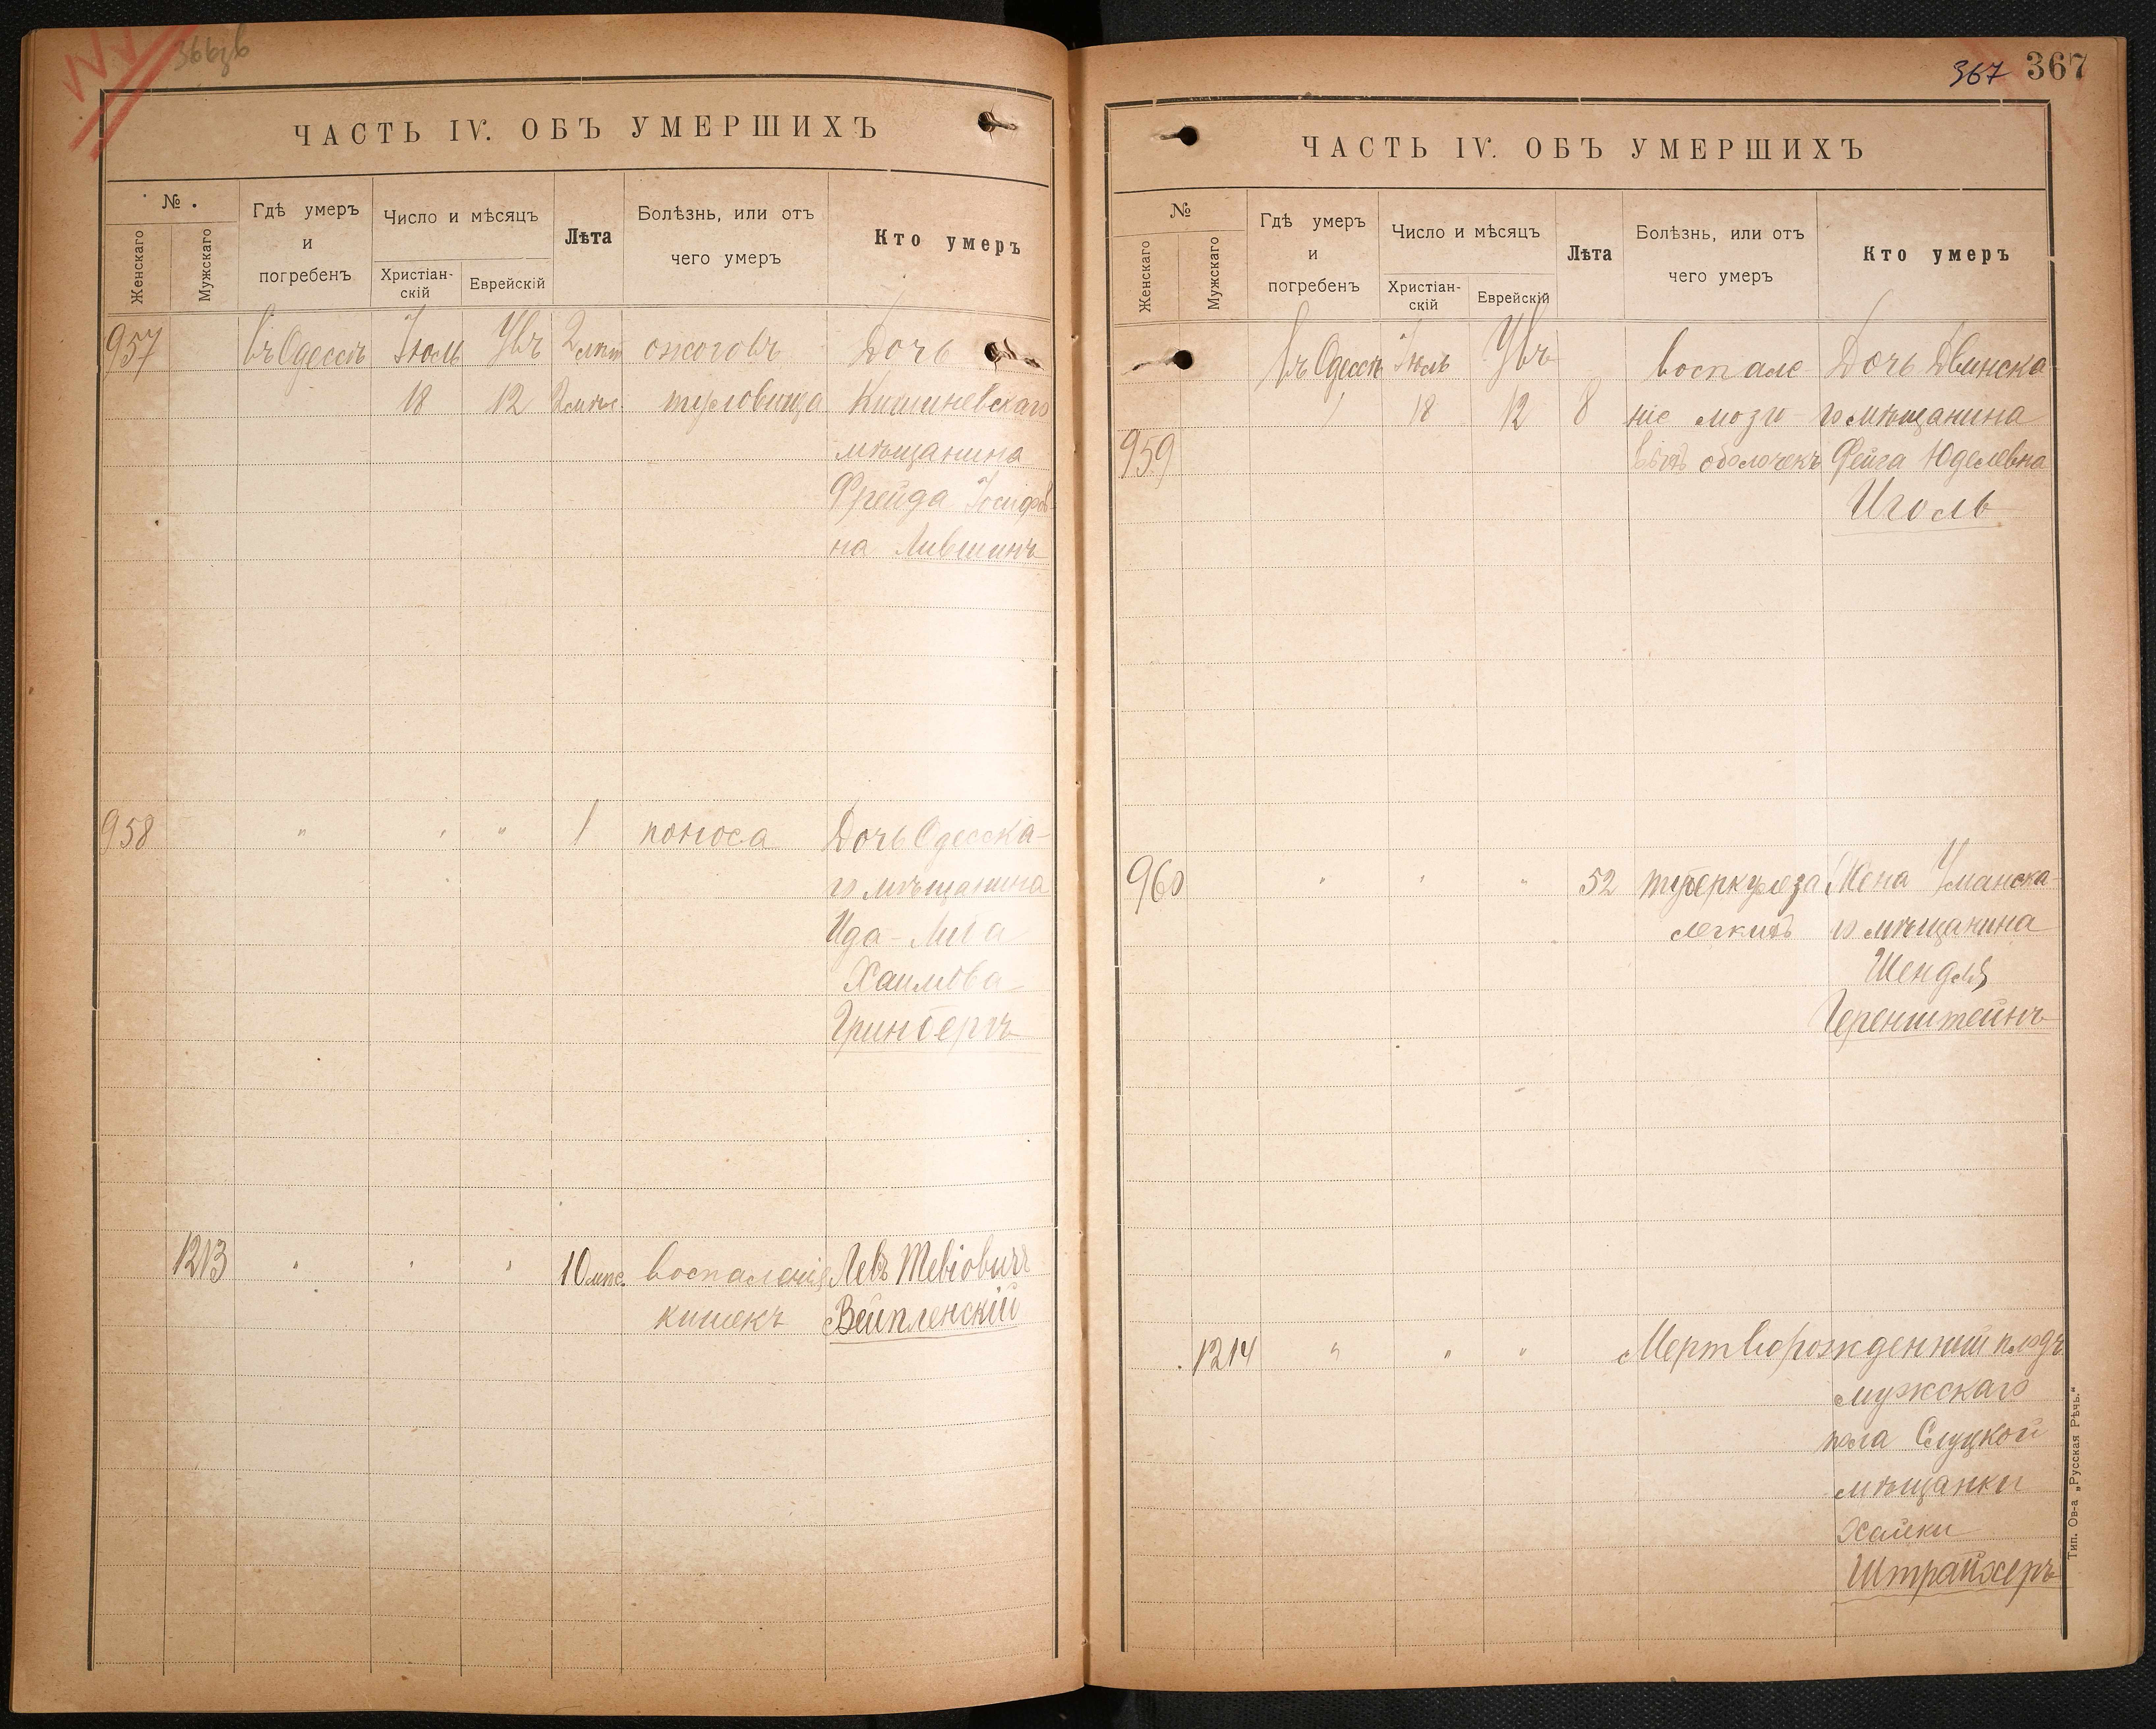 366об
ЧАСТЬ IV. ОБЪ УМЕРШИХЪ
№
Женскаго
Мужскаго
Гдѣ умеръ
и
погребенъ
Число и мѣсяцъ
Христіан-
скій
Еврейскій
Лѣта
Болѣзнь, или отъ
чего умеръ
Кто умеръ
957 въ Одессѣ Іюль Увъ 2 лѣт ожоговъ Дочь
18 12 туловища Кишиневскаго
мѣщанина
Фрейда Іосифов
на Лившинъ
958 " " " 1 поноса Дочь Одесска-
го мѣщанина
Ида-
Хаимова
Гринбергъ
1213 " " " 10 мѣс. воспаленія Левъ Тевіовичъ
кишекъ Вейпленскій
367 367
ЧАСТЬ IV. ОБЪ УМЕРШИХЪ
№
Женскаго
Мужскаго
Гдѣ умеръ
и
погребенъ
Число и мѣсяцъ
Христіан-
скій
Еврейскій
Лѣта
Болѣзнь, или отъ
чего умеръ
Кто умеръ
въ Одессѣ Іюль Увъ воспале Дочь Двинска
18 12 8 ніе мозго го мѣщанина
959 выхъ оболочекъ Фейга Юделевна
Иголь
960 " " " 52 туберкулеза Жена Уманска-
легкихъ го мѣщанина
Шендля
Геренштейнъ
1214 " " " Мертворожденный плодъ
мужскаго
пола Слуцкой
мѣщанки
Хайки
Штрайхеръ
Тип. Ов-а „Русская Рѣчь.“